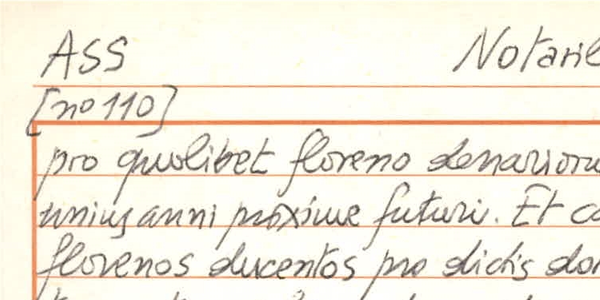 ASS Notaril
[nº 110]
pro quolibet floreno denarioru
unius anni proxime futuri. Et co
florenos ducentos pro dictis don